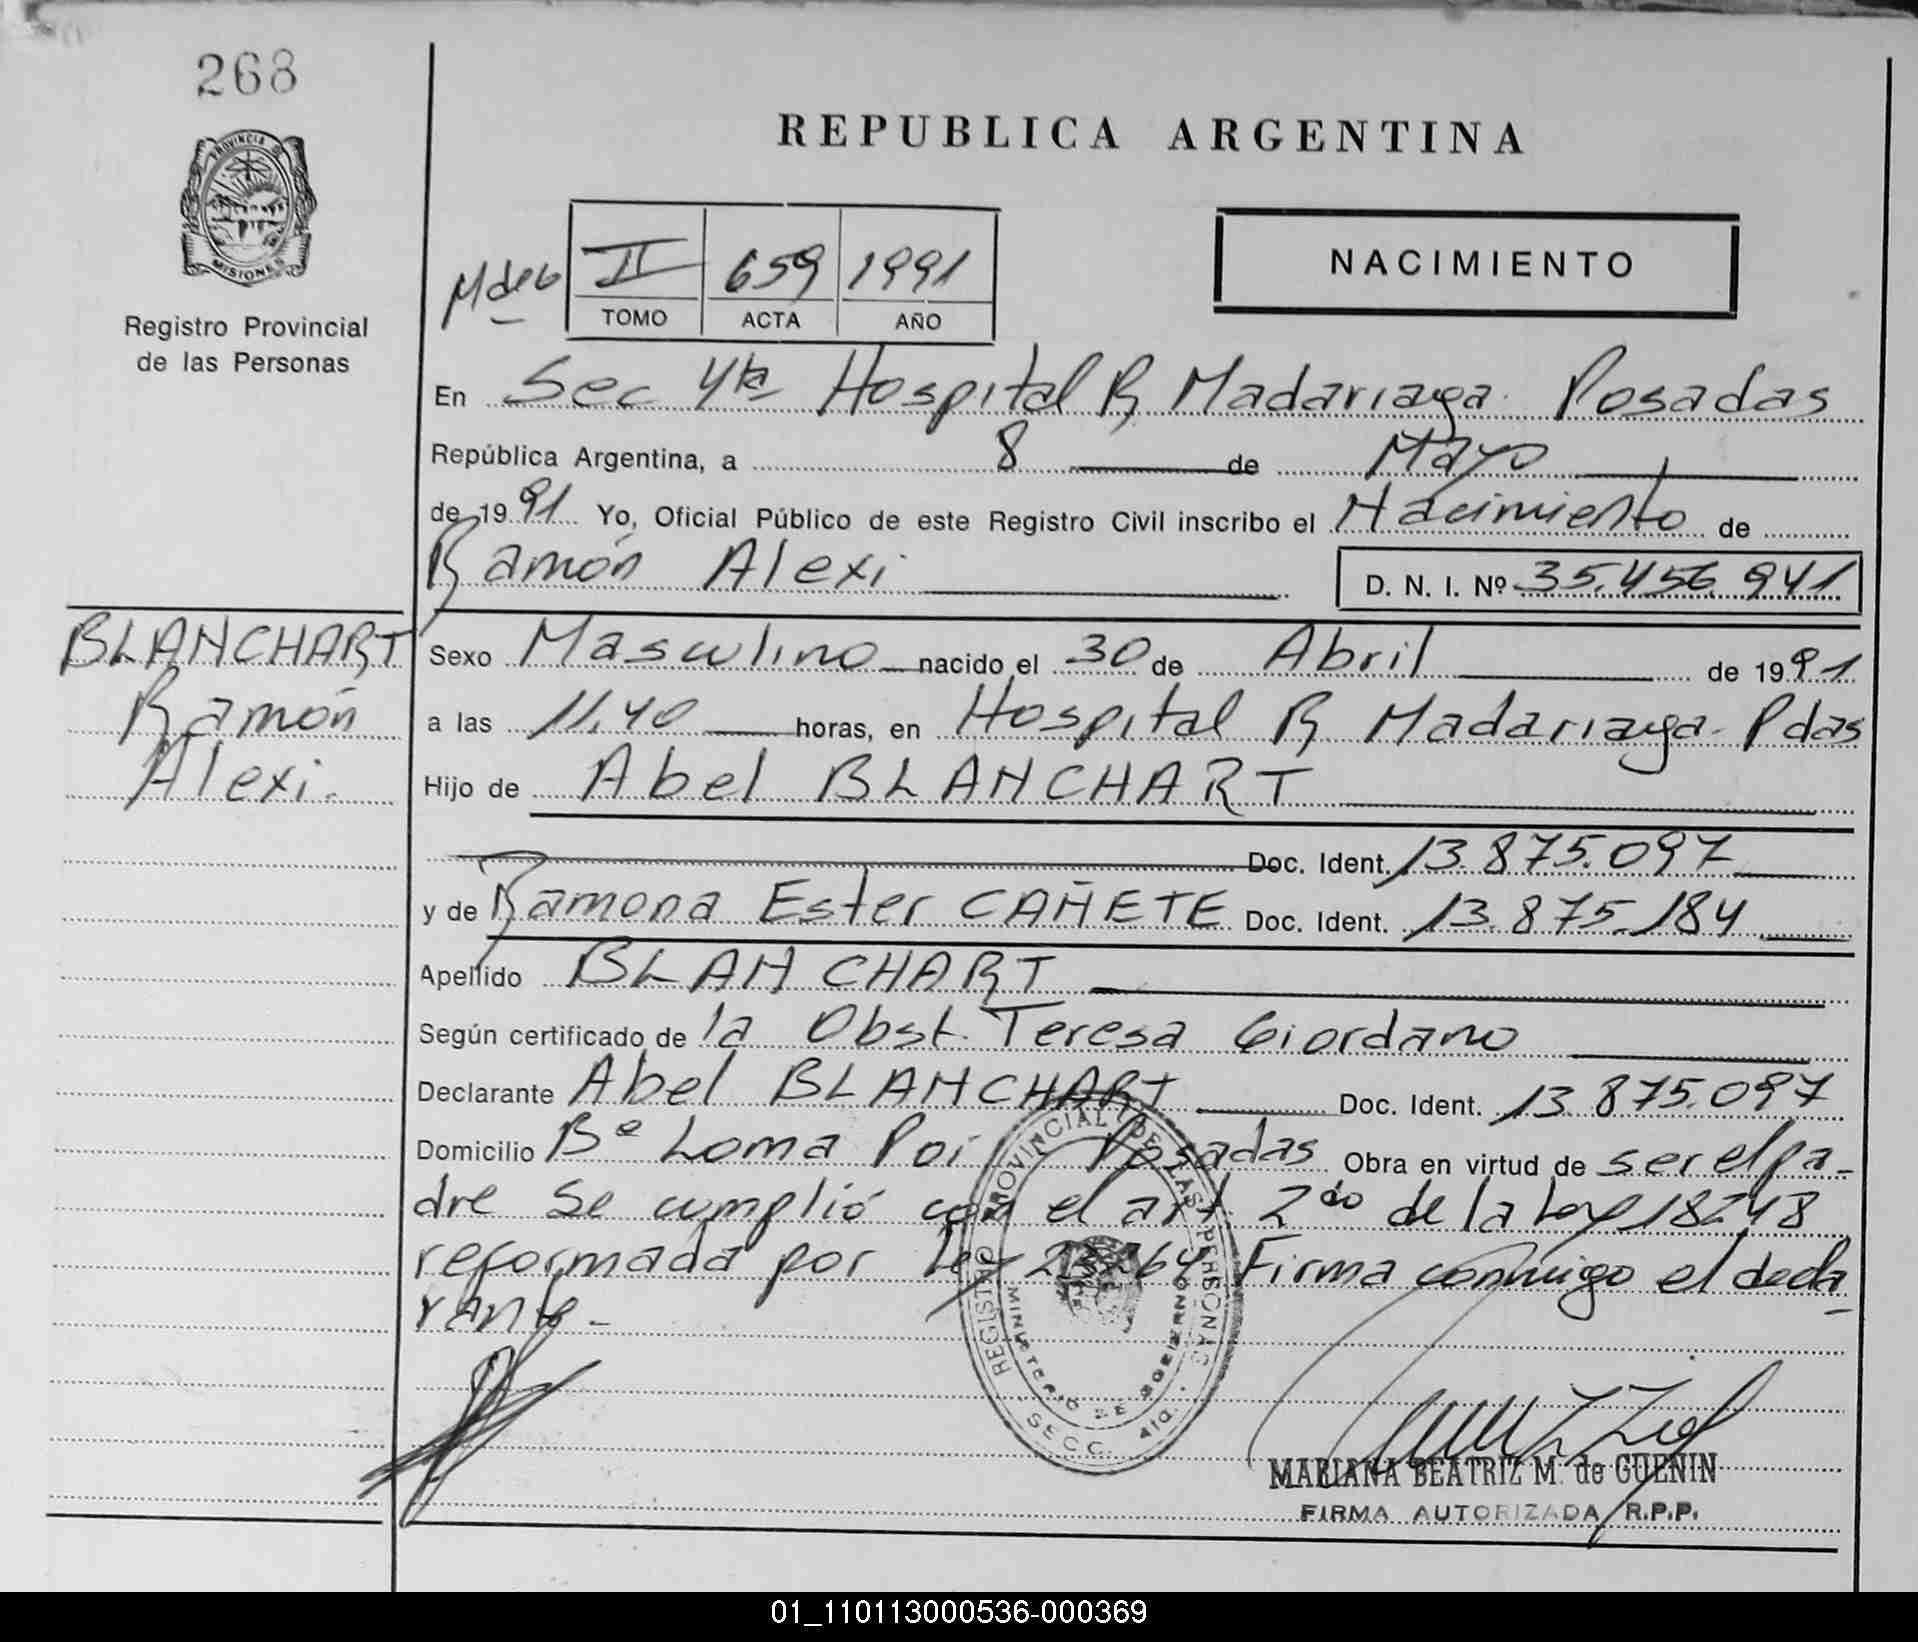 268
REPUBLICA ARGENTINA
PROVINCIA DE MISIONES
Registro Provincial
de las Personas
NACIMIENTO
II 659 1991
TOMO ACTA AÑO
En Sec 4ta Hospital R Madariaga. Posadas
República Argentina, a 8 de Mayo
de 1991 Yo, Oficial Público de este Registro Civil inscribo el Nacimiento de
Ramón Alexi D. N. I. Nº 35.456.941
BLANCHART
Ramón
Alexi.
Sexo Masculino nacido el 30 de Abril de 1991
a las 11.40 horas, en Hospital R Madariaga. Pdas
Hijo de Abel BLANCHART
Doc. Ident. 13.875.097
y de Ramona Ester CAÑETE Doc. Ident. 13.875.184
Apellido BLANCHART
Según certificado de la Obst. Teresa Giordano
Declarante Abel BLANCHART Doc. Ident. 13.875.097
Domicilio Bº Loma Poi Posadas Obra en virtud de ser el pa-
dre Se cumplió con el art. 2do de la Ley 18248
reformada por Ley 23264 Firma conmigo el decla
rante -
REGISTRO PROVINCIAL DE LAS PERSONAS
MINISTERIO DE GOBIERNO
SECC. 4ta.
MARIANA BEATRIZ M. de GUENIN
FIRMA AUTORIZADA R.P.P.
01_110113000536-000369